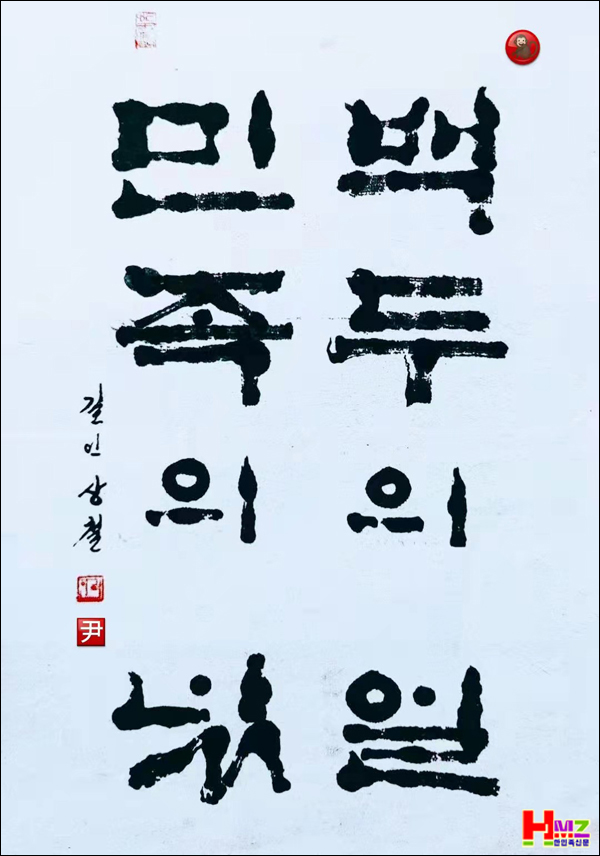 백두의 얼
민족의 넋
길인 상철
尹
HMZ
한민족신문